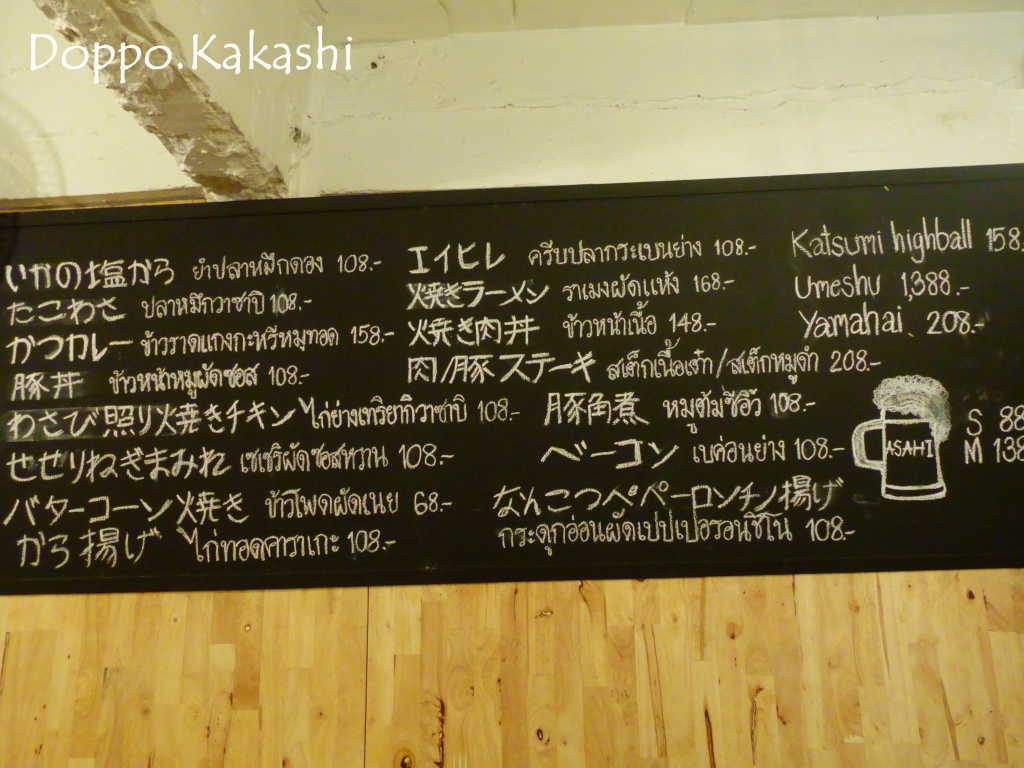 Doppo.Kakashi
いかの塩から ยำปลาหมึกดอง 108.-
たこわさ ปลาหมึกวาซาบิ 108.-
かつカレー ข้าวราดแกงกะหรี่หมูทอด 158.-
豚丼 ข้าวหน้าหมูผัดซอส 108.-
わさび照り火焼きチキン ไก่ย่างเทริยากิวาซาบิ 108.-
せせりねぎまみれ เซเซริผัดซอสหวาน 108.-
バターコーン火焼き ข้าวโพดผัดเนย 68.-
から揚げ ไก่ทอดคาราเกะ 108.-
エイヒレ ครีบปลากระเบนย่าง 108.-
焼きラーメン ราเมงผัดแห้ง 168.-
焼き肉丼 ข้าวหน้าเนื้อ 148.-
肉/豚ステーキ สเต็กเนื้อเต๋า/สเต็กหมูดำ 208.-
豚角煮 หมูต้มซีอิ๊ว 108.-
ベーコン เบค่อนย่าง 108.-
なんこつペペーロンチノ揚げ
กระดูกอ่อนผัดเปปเปอรอนชีโน 108.-
Katsumi highball 158.
Umeshu 1,388.-
Yamahai 208.-
ASAHI
S 88
M 138